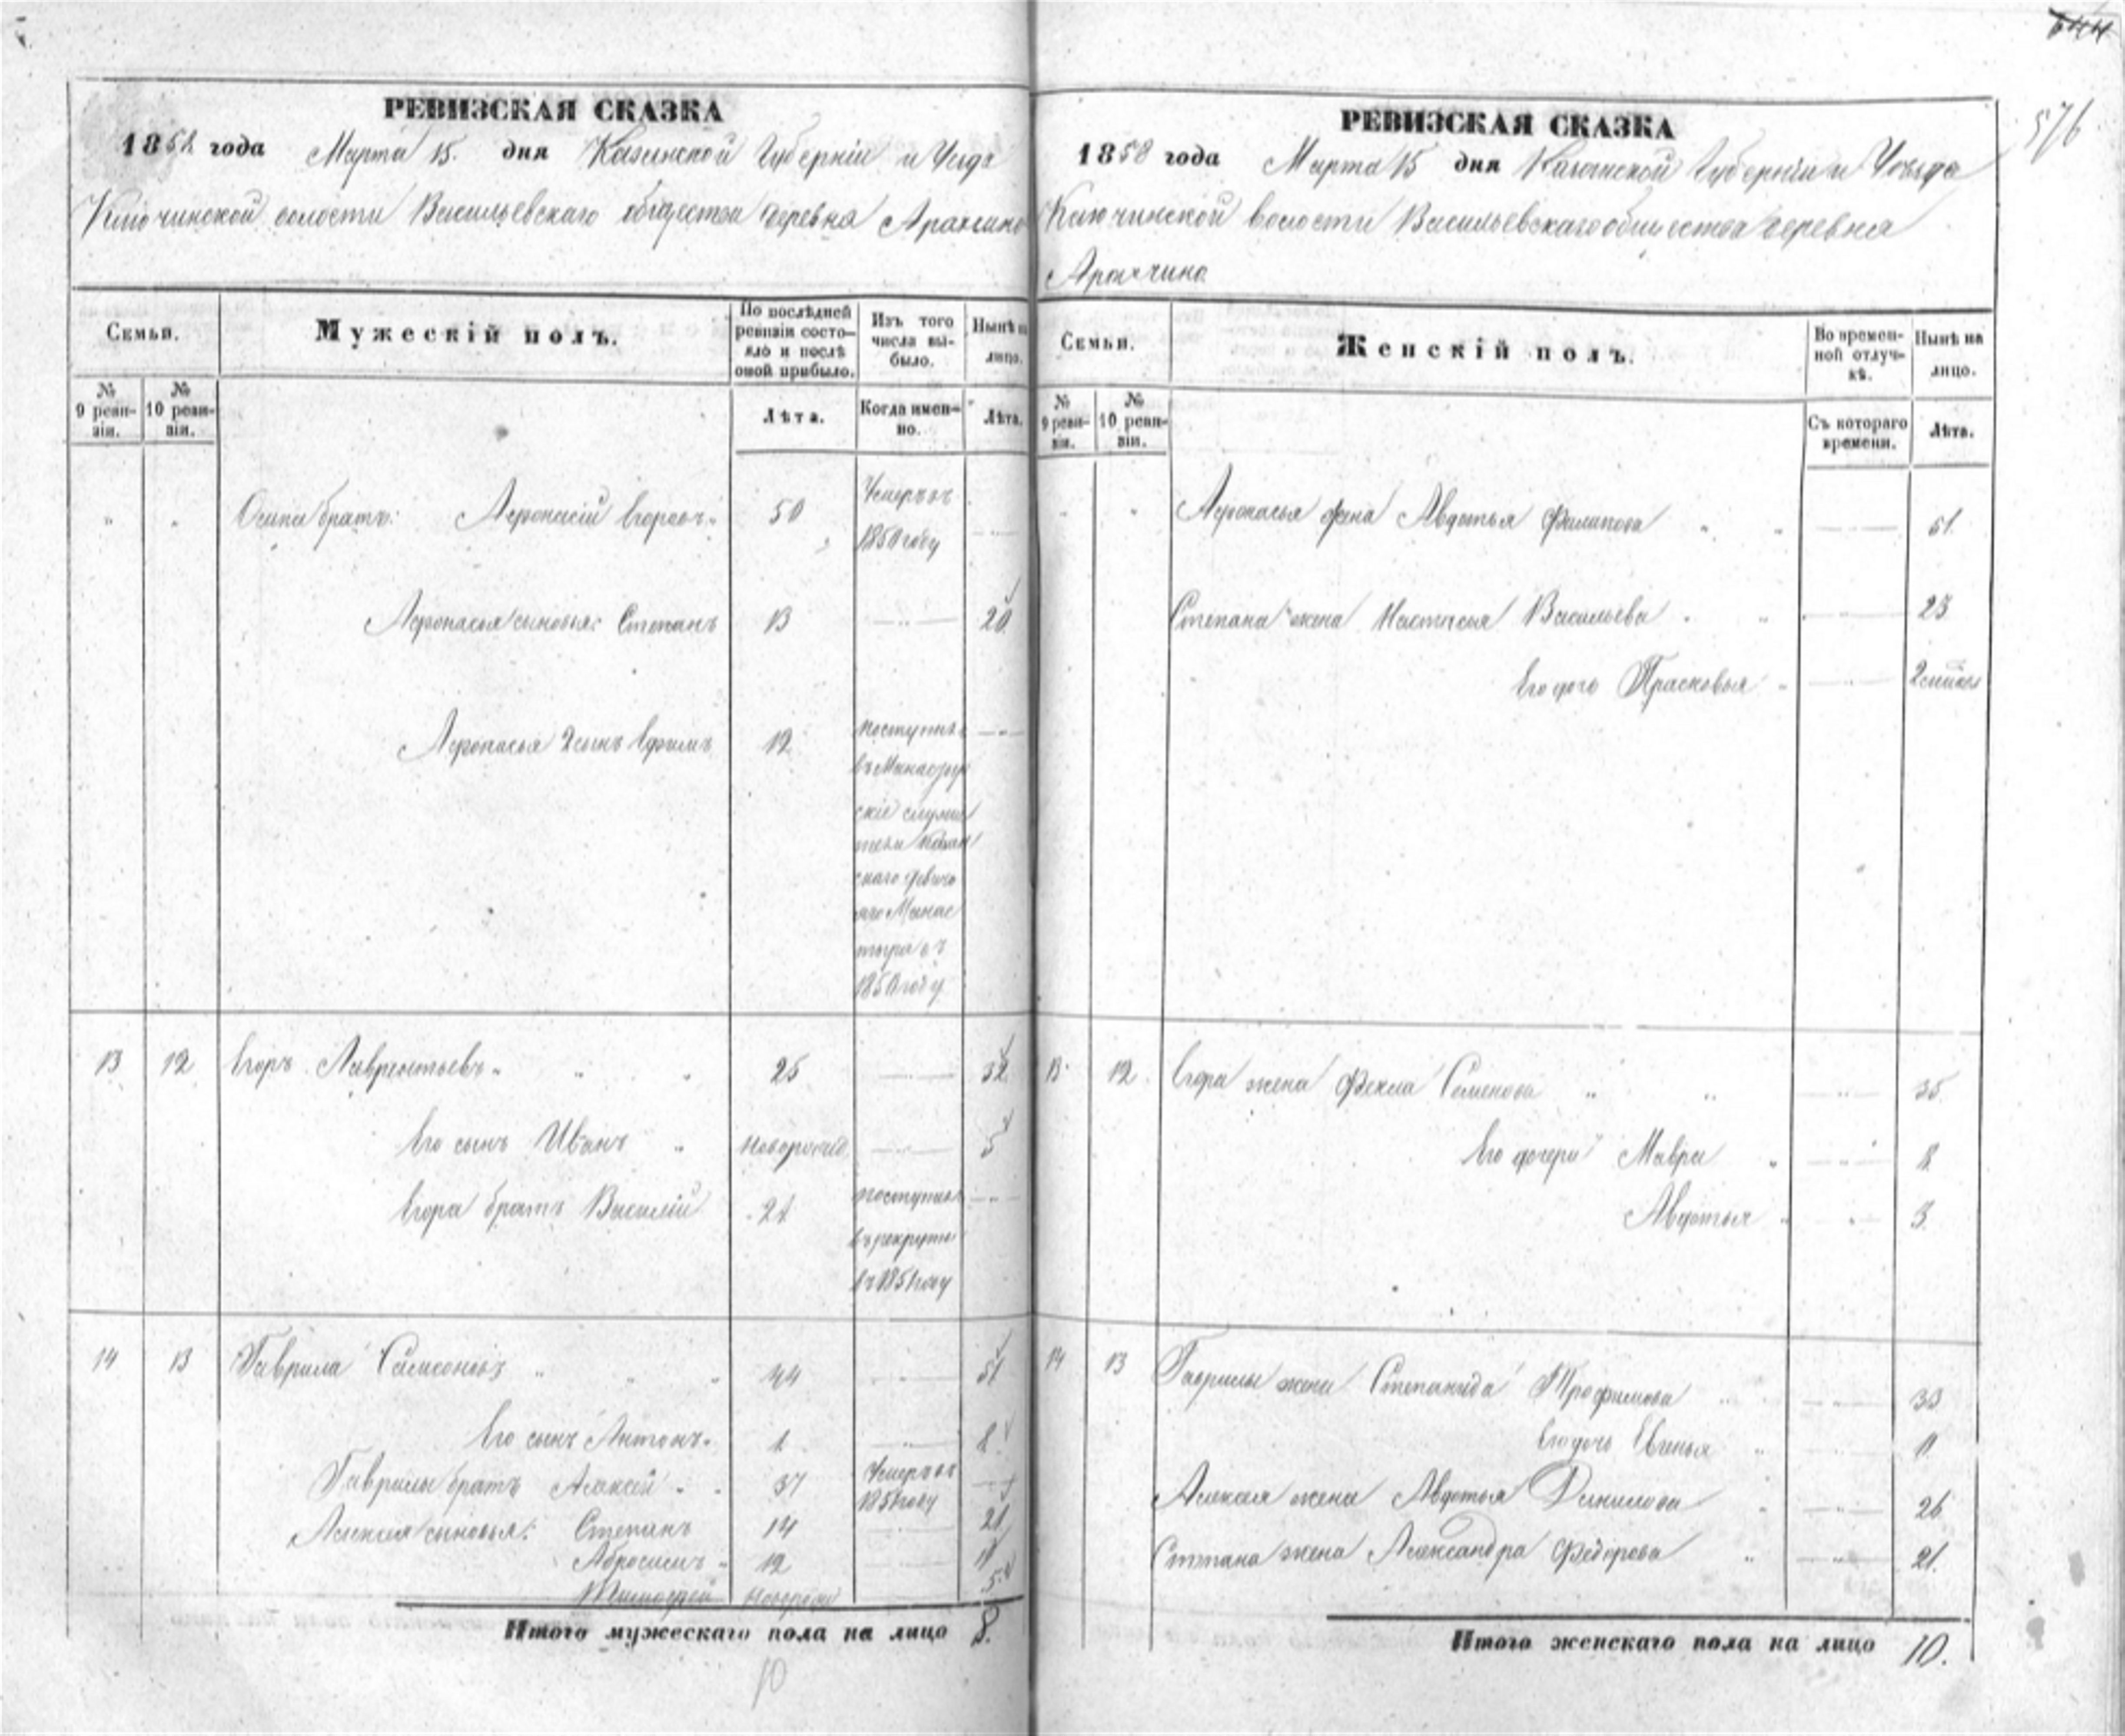 576
РЕВИЗСКАЯ СКАЗКА
1858 года Марта 15. дня Казанской Губерніи и Уезда
Ключинской волости Васильевскаго общества деревня Аракчино
Семьи.
Мужескій полъ.
По послѣдней ревизіи состояло и послѣ оной прибыло.
Изъ того числа выбыло.
Нынѣ на лицо.
№ 9 ревизіи.
№ 10 ревизіи.
Лѣта.
Когда именно.
Лѣта.
Осипа братъ: Афонасій Егоровъ 50 Умеръ въ 1850 году
Афонасья сыновья: Степанъ 13 20
Афонасья 2 сынъ Ефимъ 12 поступилъ
въ Манастыр
скіе служи
тели Казан
скаго Девичь
яго Манас
тыря въ
1850 году
13 12 Егоръ Лаврентьевъ 25 32
Его сынъ Иванъ Новорожд 5
Егора братъ Василій 21 поступилъ
въ рекруты
въ 1851 году
14 13 Гаврила Самсоновъ 44 51
Его сынъ Антонъ 1 8
Гаврилы братъ Алексѣй 37 Умеръ въ 1851 году
Алексея сыновья: Степанъ 14 21
Абросимъ 12
Тимофей Новорожд 5
Итого мужескаго пола на лицо 8.
10
РЕВИЗСКАЯ СКАЗКА
1858 года Марта 15 дня Казанской Губерніи и Уезда
Ключинской волости Васильевскаго общества деревня
Аракчино
Семьи.
Женскій полъ.
Во временной отлучкѣ.
Нынѣ на лицо.
№ 9 ревизіи.
№ 10 ревизіи.
Съ котораго времени.
Лѣта.
Афонасья жена Авдотья Филипова 51.
Степана жена Настасья Васильева 23
Его дочь Прасковья
13 12. Егора жена Фекла Семенова 35
Его дочери Мавра 8
Авдотья 3.
14 13 Гаврилы жена Степанида Трофимова 33
Его дочь Евгенья 11
Алексея жена Авдотья Данилова 26
Степана жена Александра Федорова 21.
Итого женскаго пола на лицо 10.